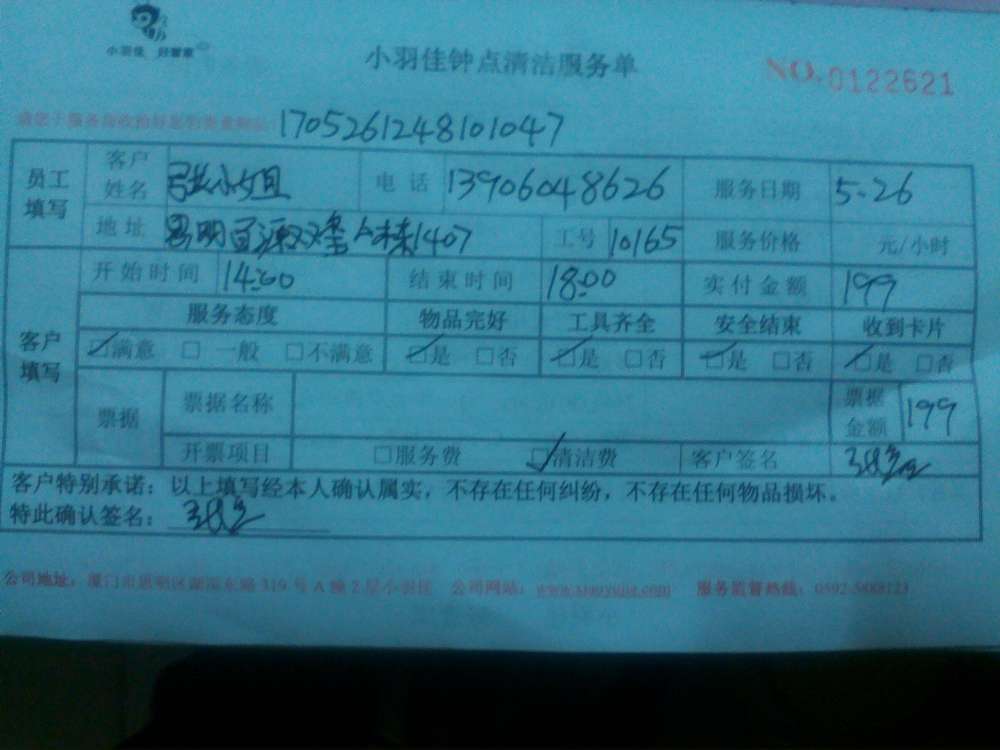 小羽佳 好管家
小羽佳钟点清洁服务单
NO.0122621
1705261248101047
员工填写 客户姓名 张小姐 电话 13906048626 服务日期 5.26
地址 1407 工号 10165 服务价格 元/小时
客户填写 开始时间 14:00 结束时间 18:00 实付金额 199
服务态度 物品完好 工具齐全 安全结束 收到卡片
☑满意 □一般 □不满意 ☑是 □否 ☑是 □否 ☑是 □否 ☑是 □否
票据 票据名称 票据金额 199
开票项目 □服务费 ☑清洁费 客户签名
客户特别承诺：以上填写经本人确认属实，不存在任何纠纷，不存在任何物品损坏。
特此确认签名：
公司地址：厦门市思明区湖滨东路 319 号 A 幢 2 层小羽佳 公司网站： 服务监督热线：